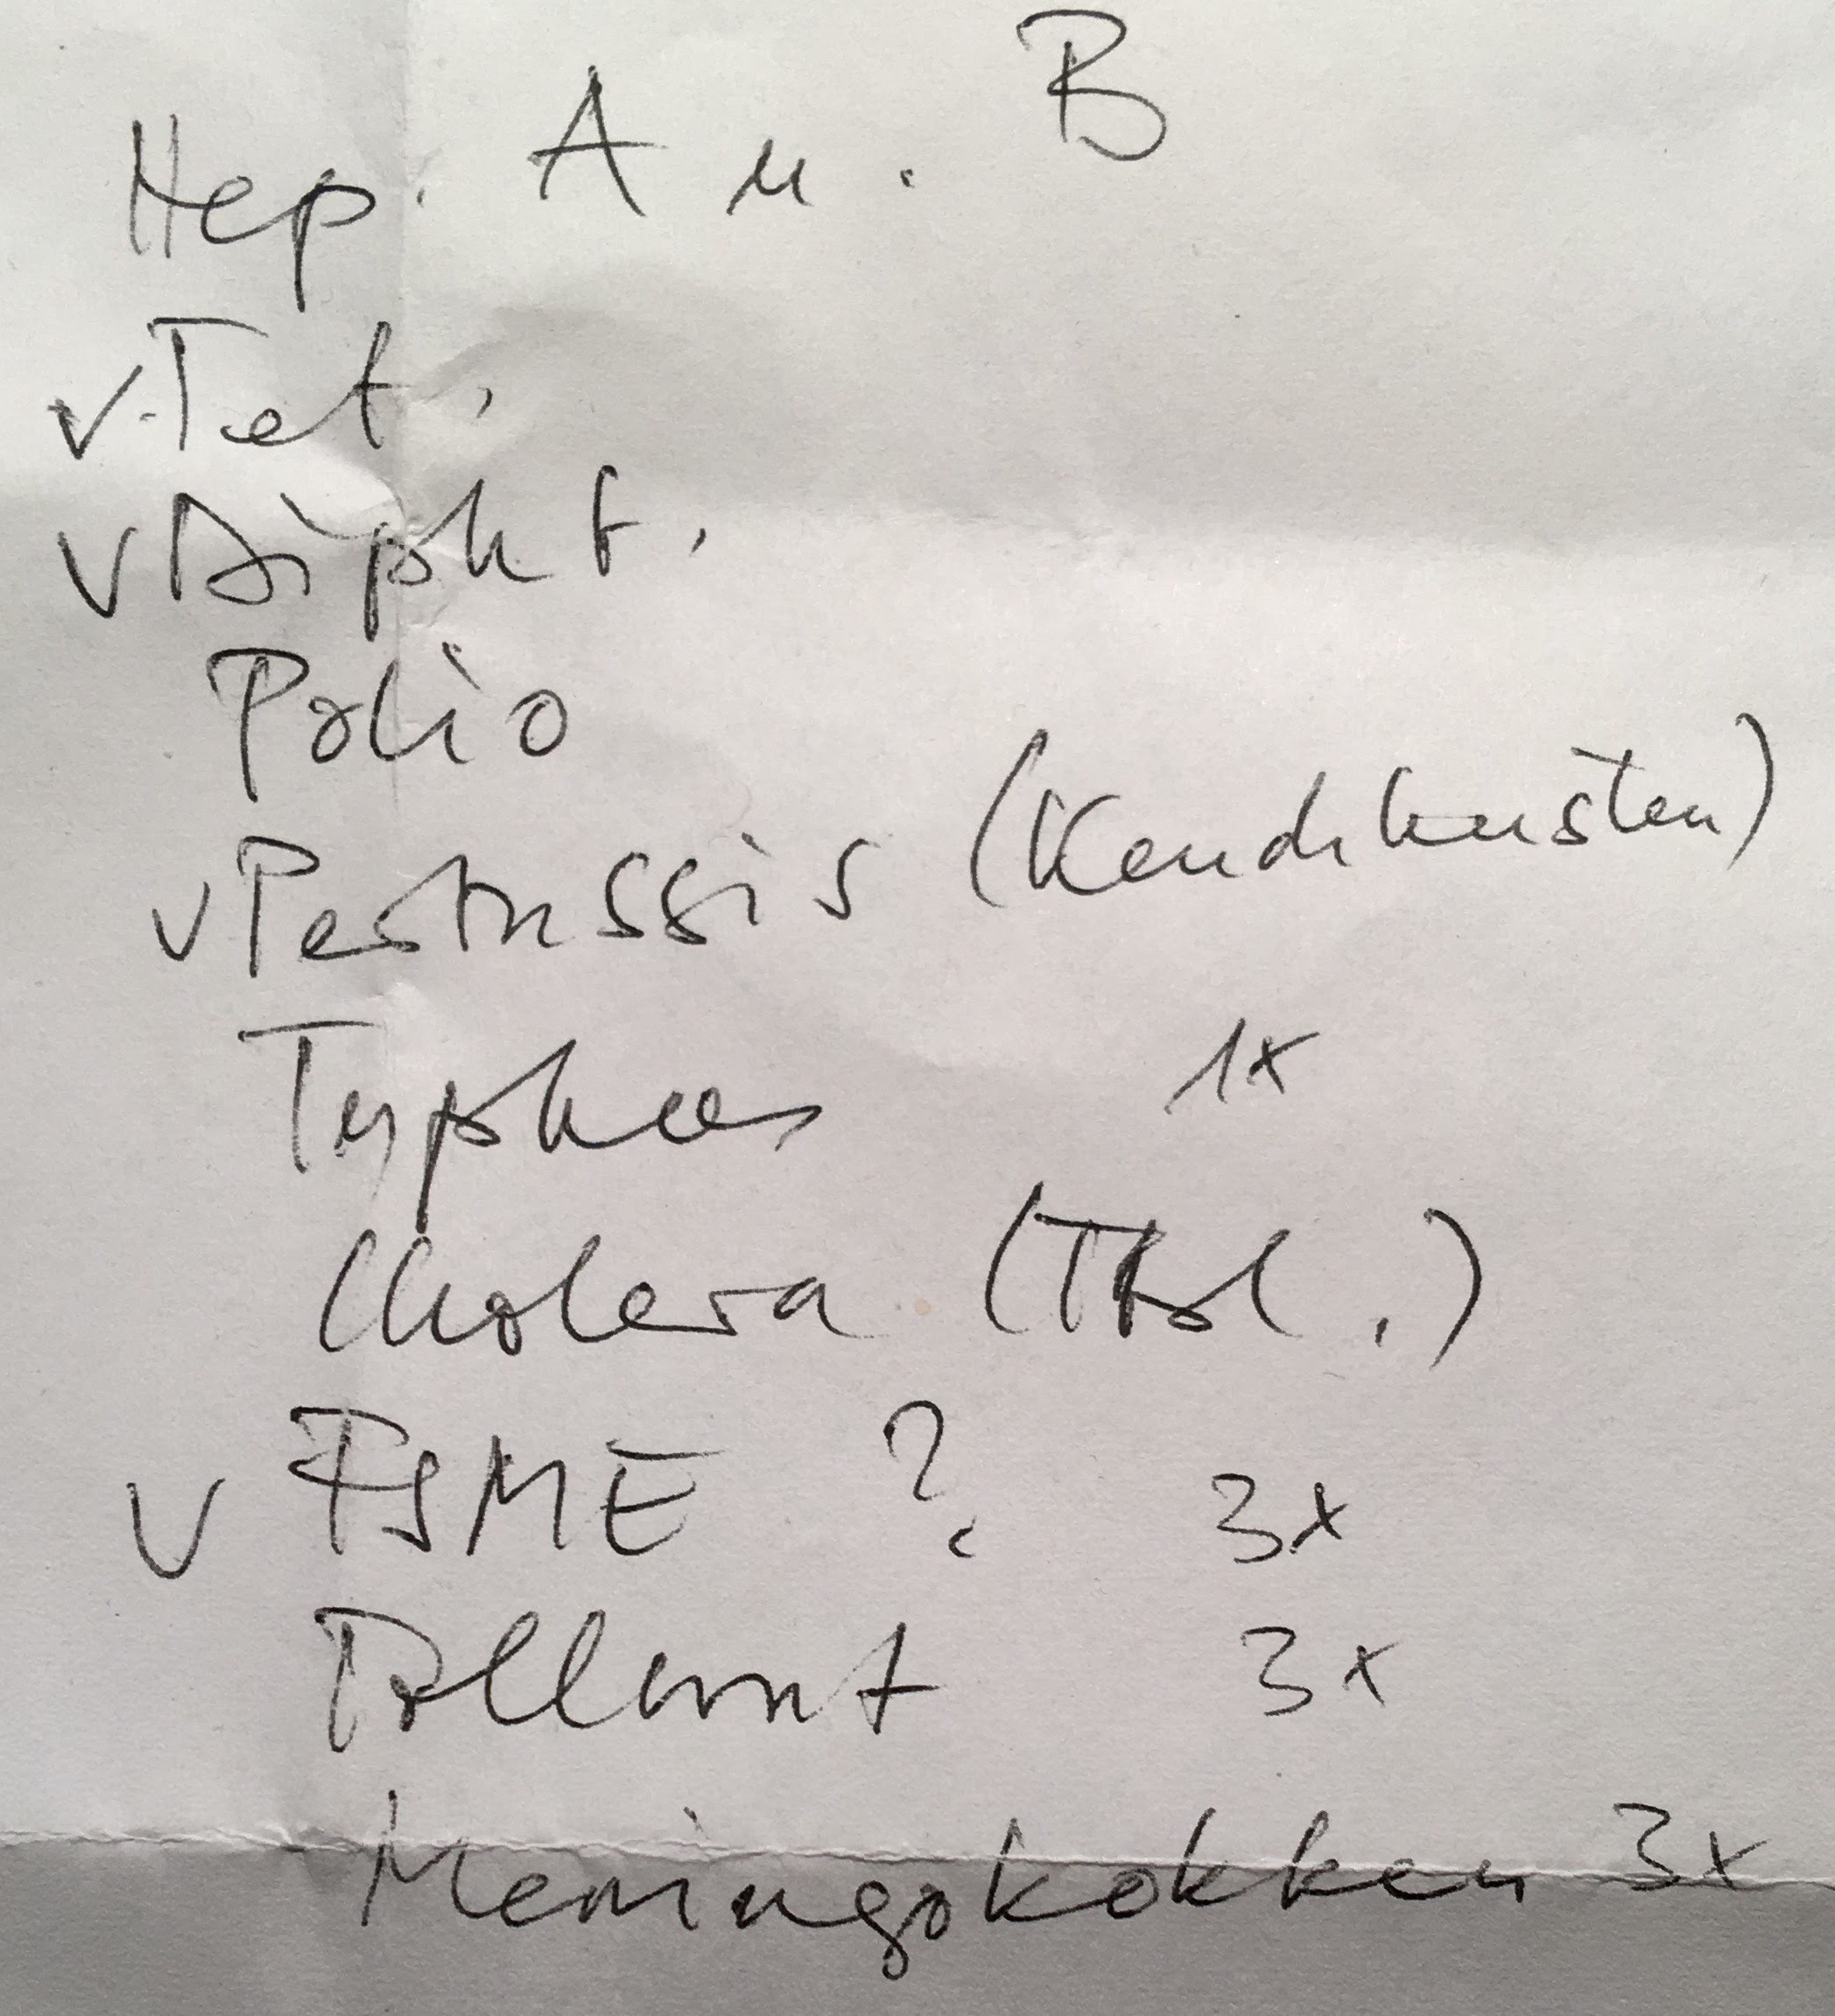 Hep. A u. B
✓ Tet.
✓ Dipht.
Polio
✓ Pertussis (Keuchhusten)
Typhus 1x
Cholera (Tbl.)
✓ FSME ? 3x
Tollwut 3x
Meningokokken 3x